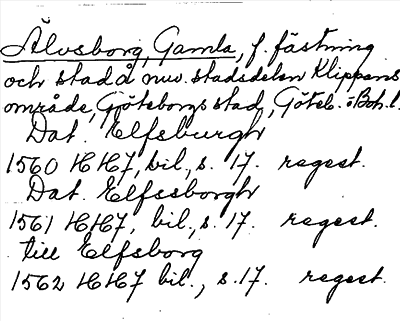 Älvsborg, Gamla, f. fästning
och stad å nuv. stadsdelen Klippans
område, Göteborgs stad, Göteb. o Boh. l.
Dat. Elfsburgh
1560 HH7, bil, s. 17. regest.
Dat. Elfssborgh
1561 HH7, bil., s. 17. regest.
till Elfsborg
1562 HH7 bil., s. 17. regest.